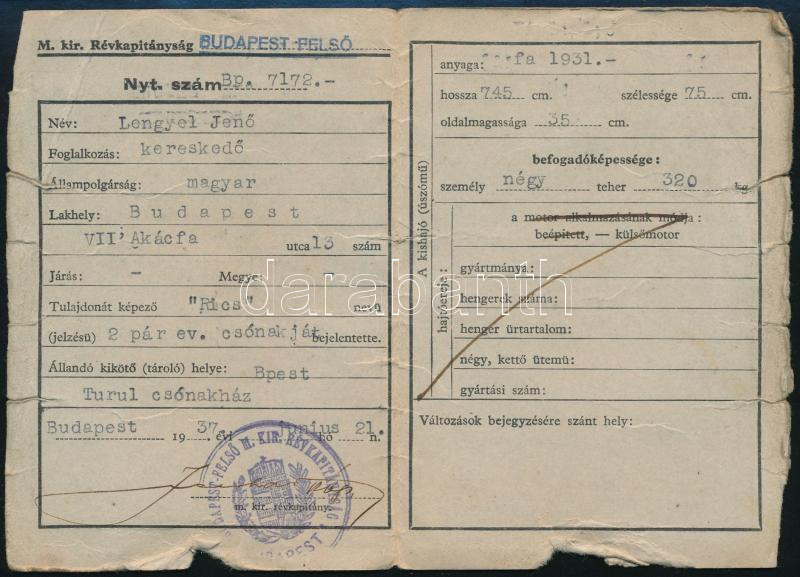 M. kir. Révkapitányság BUDAPEST-FELSŐ
Nyt. szám Bp. 7172.-
Név: Lengyel Jenő
Foglalkozás: kereskedő
Állampolgárság: magyar
Lakhely: Budapest
VII' Akácfa utca 13 szám
Járás: - Megye: -
Tulajdonát képező "Rics" nevü
(jelzésü) 2 pár ev. csónakját bejelentette.
Állandó kikötő (tároló) helye: Bpest
Turul csónakház
Budapest 1937. évi junius hó 21. n.
m. kir. révkapitány.
BUDAPEST-FELSŐ M. KIR. RÉVKAPITÁNYSÁG
BUDAPEST
A kishajó (úszómű)
anyaga: fa 1931.-
hossza 745 cm. szélessége 75 cm.
oldalmagassága 35 cm.
befogadóképessége:
személy négy teher 320 kg
hajtóereje:
a motor alkalmazásának módja:
beépített, — külsőmotor
gyártmánya:
hengerek száma:
henger ürtartalom:
négy, kettő ütemü:
gyártási szám:
Változások bejegyzésére szánt hely:
darabanth